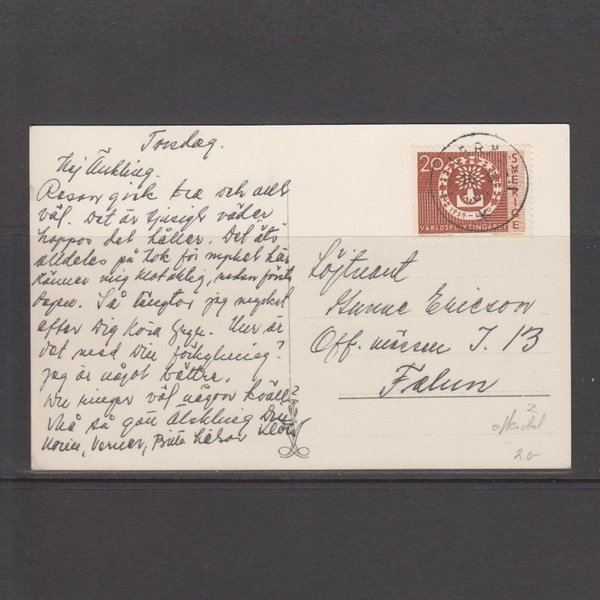 Torsdag.
Hej Älskling.
Resan gick bra och allt
väl. Det är tjusigt väder
hoppas det håller. Det äts
alldeles på tok för mycket här
känner mig klotaktig, redan första
dagen. Så längtar jag mycket
efter Dig Kära Gegu. Hur är
det med Din förkylning?
Jag är något bättre.
Du ringer väl någon kväll
Må så gott Älskling Din
Karin, Verner, Britta hälsar
20
SVERIGE
1959-
VÄRLDSFLYKTINGÅRET
Löjtnant
Sunne Ericson
Off. mässen I. 13
Falun
20-